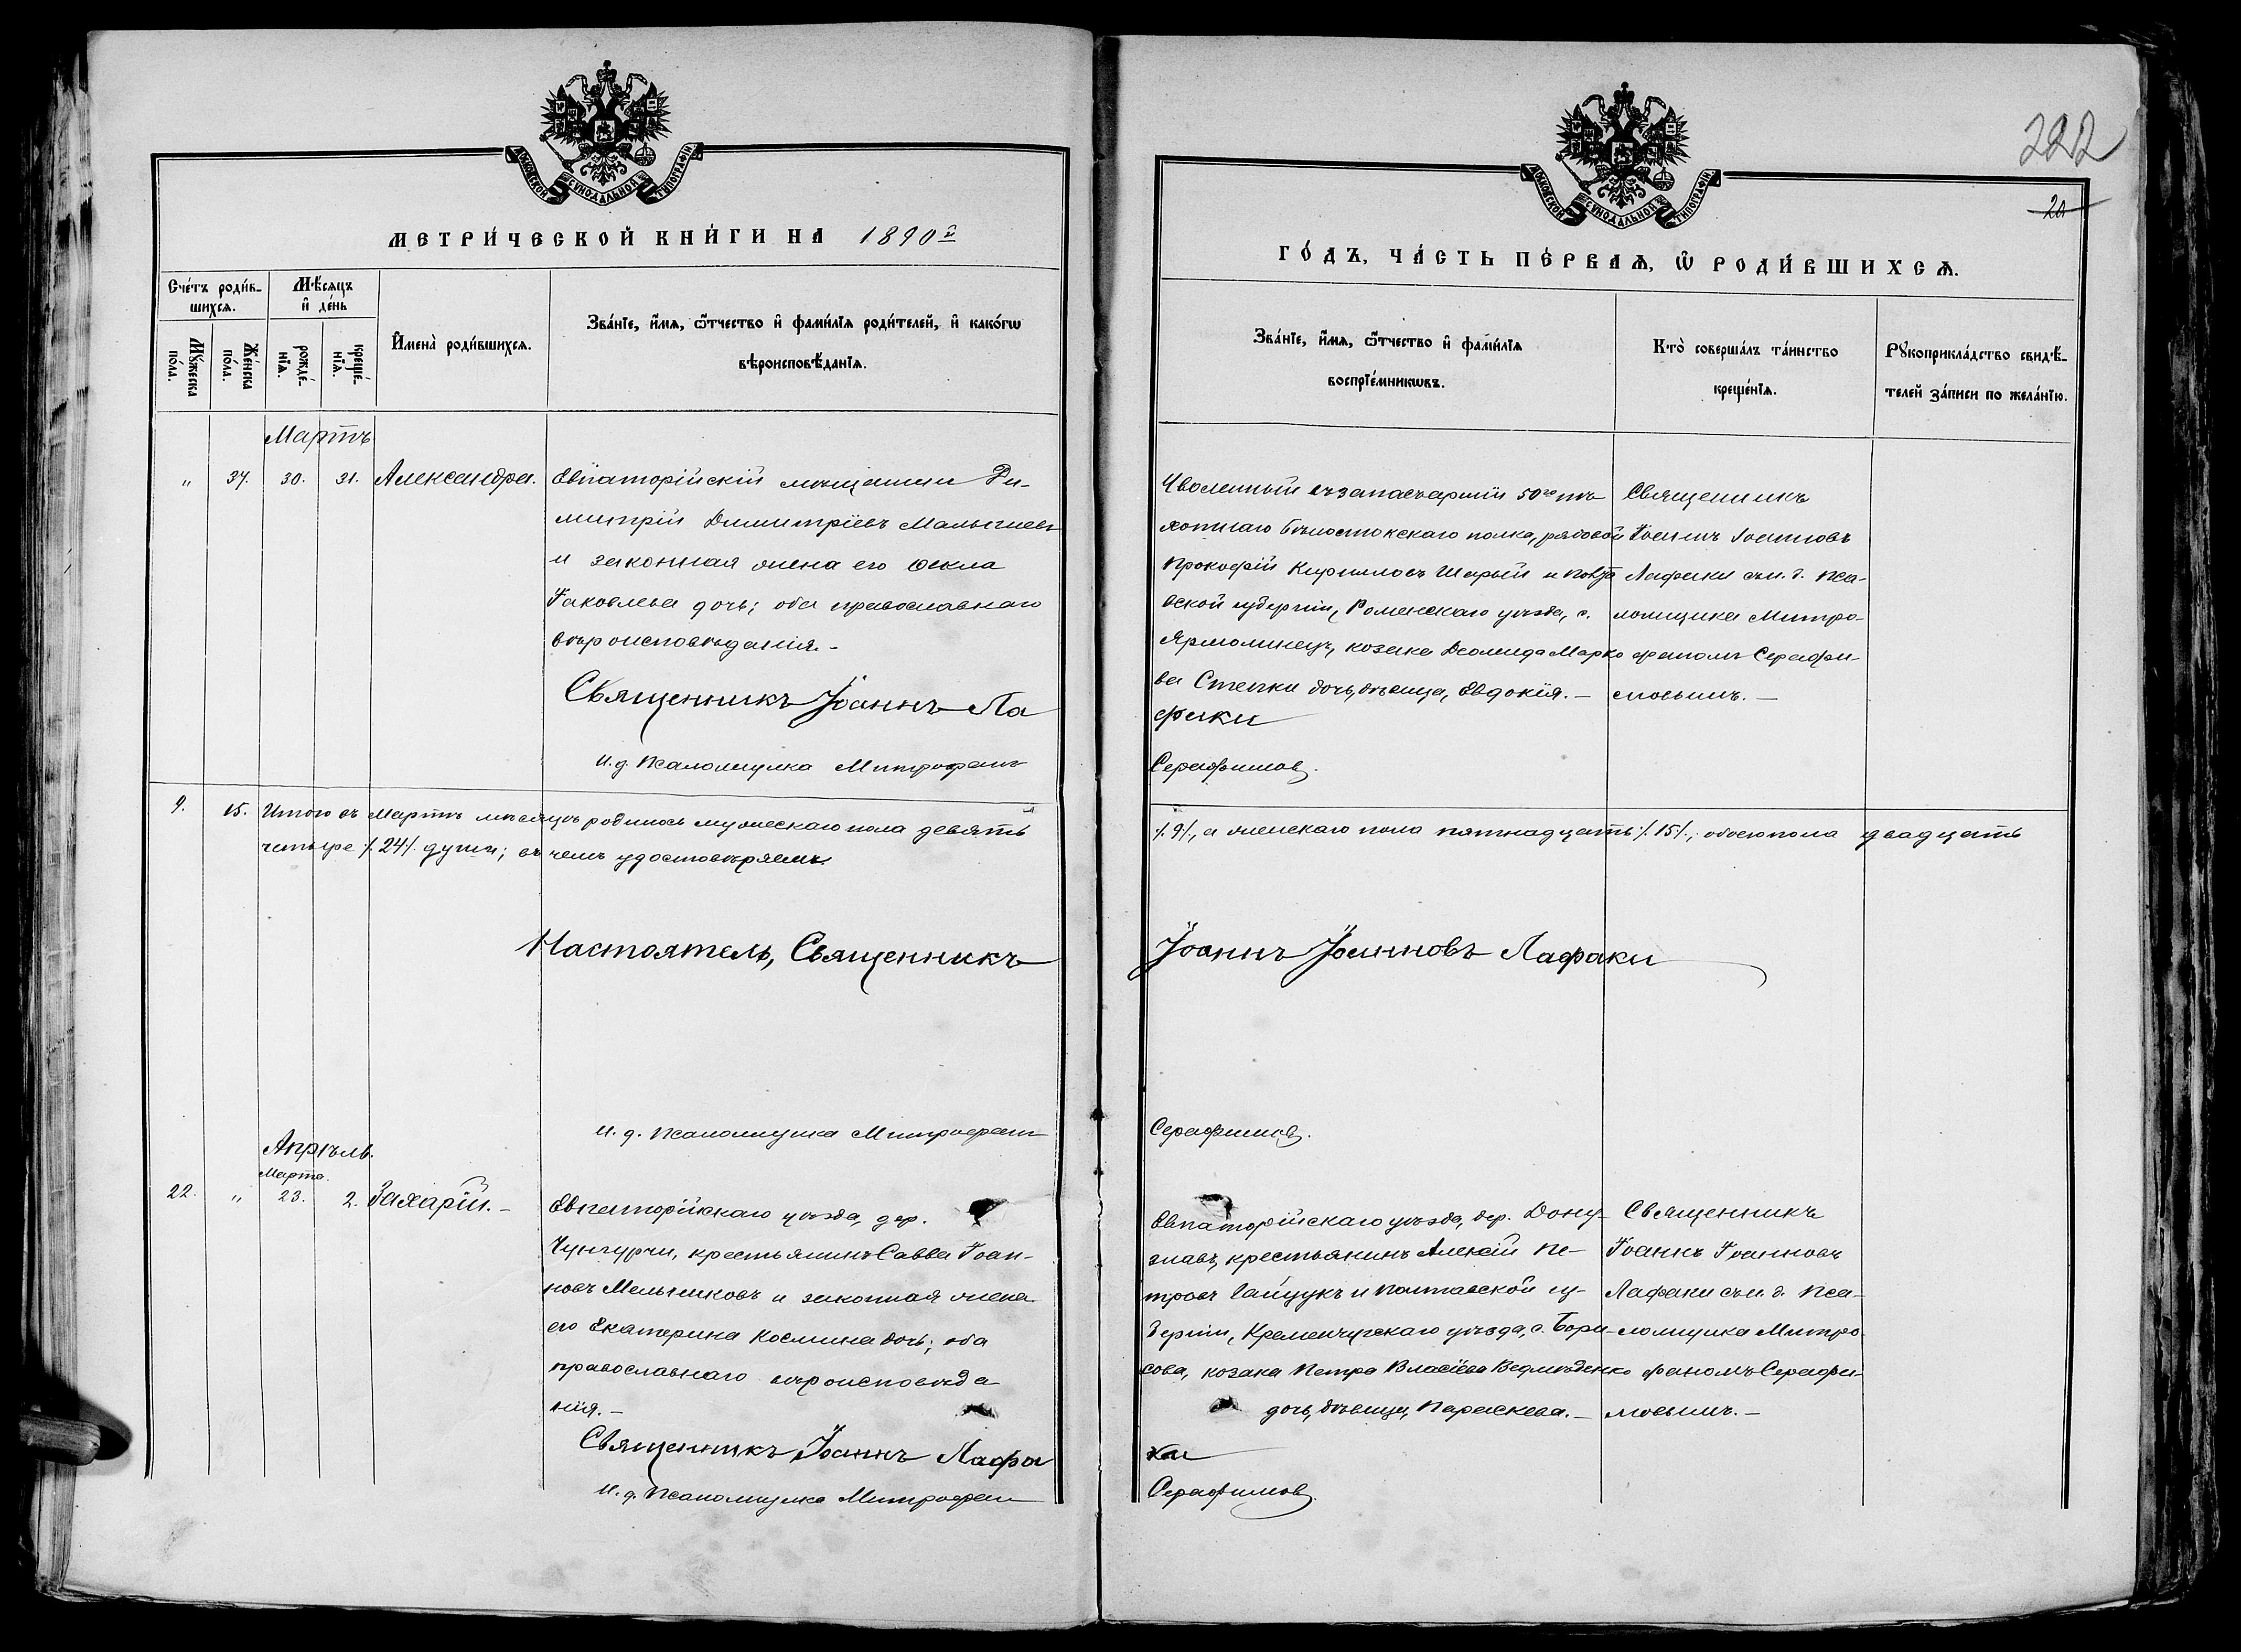 222
20
МОСКОВСКОЙ СУНОДАЛЬНОЙ ТИПОГРАФІИ
МОСКОВСКОЙ СУНОДАЛЬНОЙ ТИПОГРАФІИ
МЕТРИ́ЧЕСКОЙ КНИ́ГИ НА 1890й
ГО́ДЪ, ЧА́СТЬ ПЕ́РВАѦ, Ѽ РОДИ́ВШИХСѦ.
Сче́тъ роди́в-
шихсѧ.
Мꙋ́жеска
по́ла.
Же́нска
по́ла.
Мѣ́сяцъ
и҆ де́нь
рожде́-
нїѧ.
креще́-
нїѧ.
И҆мена̀ роди́вшихсѧ.
Зва́нїе, и҆́мѧ, ѻ҆́тчество и҆ фами́лїѧ роди́телей, и҆ како́гѡ
вѣроисповѣ́данїѧ.
Зва́нїе, и҆́мѧ, ѻ҆́тчество и҆ фами́лїѧ
воспрїе́мникѡвъ.
Кто̀ соверша́лъ та́инство
креще́нїѧ.
Рꙋкоприкла́дство свидѣ́-
телей за́писи по жела́нїю.
Мартъ
" 37. 30. 31. Александра.
Евпаторійскій мѣщанинъ Ди-
митрій Димитріевъ Малыгинъ
и законная жена его Ѳекла
Іаковлева дочь; оба православнаго
вѣроисповѣданія.-
Священникъ Іоаннъ Ла
и.д. псаломщика Митрофанъ
Уволенный въ запасъ арміи 50го пѣ-
хотнаго Бѣлостокскаго полка, рядовой
Прокофій Кирилловъ Шарый и Полта
вской губерніи, Роменскаго уѣзда, с.
Ярмолинецъ, козака Деомида Марко
ва Степки дочь, дѣвица, Евдокія.-
факи
Серафимовъ.
Священникъ
Іоаннъ Іоанновъ
Лафаки съ и. д. пса-
ломщика Митро-
фаномъ Серафи-
мовымъ.-
9. 15. Итого въ Мартѣ мѣсяцѣ родилось мужескаго пола девять
/.9/., а женскаго пола пятнадцать /.15/., обоего пола двадцать
четыре /.24/. души; въ чемъ удостовѣряемъ.
Настоятель, Священникъ
Іоаннъ Іоанновъ Лафаки
и. д. псаломщика Митрофанъ
Серафимовъ.
Апрѣль.
Марта.
22. " 23. 2. Захарій.-
Евпаторійскаго уѣзда, дер.
Чунгурчи, крестьянинъ Савва Іоан-
новъ Мельниковъ и законная жена
его Екатерина Космина дочь; оба
православнаго вѣроисповѣда
нія.-
Священникъ Іоаннъ Лафа
И. д. псаломщика Митрофанъ
Евпаторійскаго уѣзда, дер. Дону-
злавъ, крестьянинъ Алексій Пе-
тровъ Гайдукъ и Полтавской гу-
берніи, Кременчугскаго уѣзда, с. Бори-
сова, козака Петра Власіева Ведмѣденко
дочь, дѣвица, Параскева.-
ки
Серафимовъ.
Священникъ
Іоаннъ Іоанновъ
Лафаки съ и. д. пса-
ломщика Митро-
фаномъ Серафи-
мовымъ.-